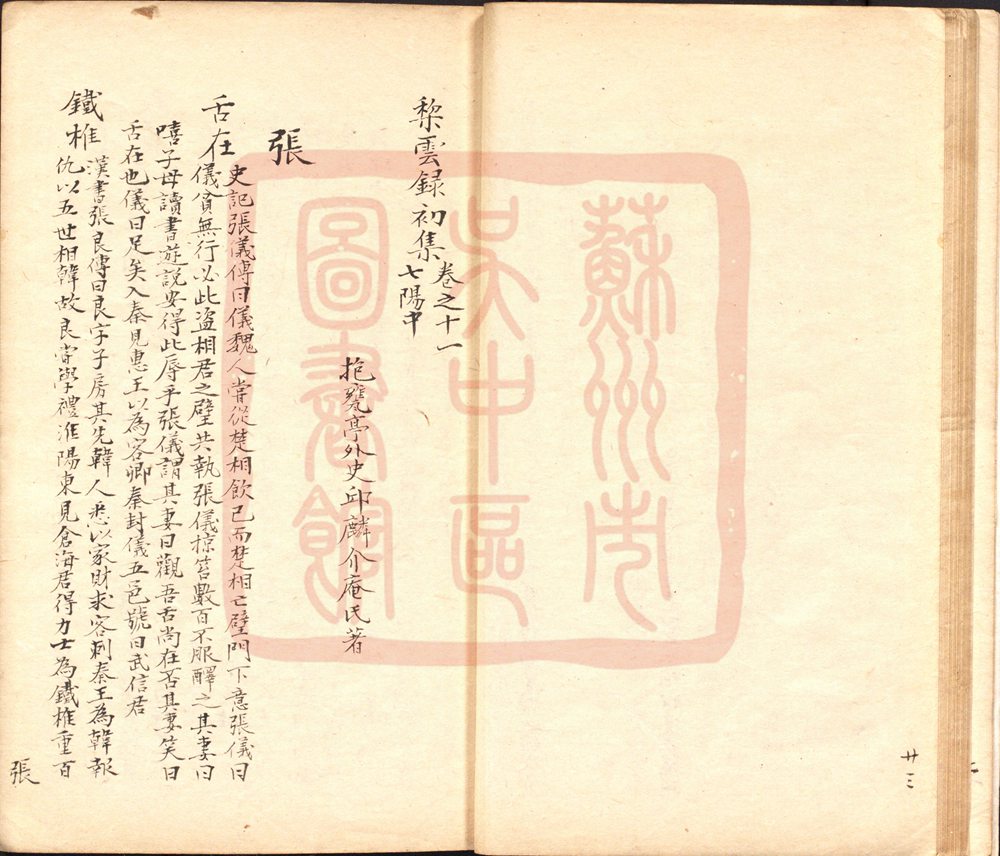 廿三
棃雲錄初集卷之十一
七陽中
抱甕亭外史邱麟介庵氏著
張
舌在史記張儀傳曰儀魏人嘗從楚相飲已而楚相亡璧門下意張儀曰
儀貧無行必此盗相君之璧共執張儀掠笞數百不服醳之其妻曰
嘻子毋讀書遊說安得此辱乎張儀謂其妻曰觀吾舌尚在否其妻笑曰
舌在也儀曰足矣入秦見惠王以為客卿秦封儀五邑號曰武信君
鐵椎漢書張良傳曰良字子房其先韓人悉以家財求客刺秦王為韓報
仇以五世相韓故良嘗學禮淮陽東見倉海君得力士為鐵椎重百
張
蘇州市
吳中區
圖書館